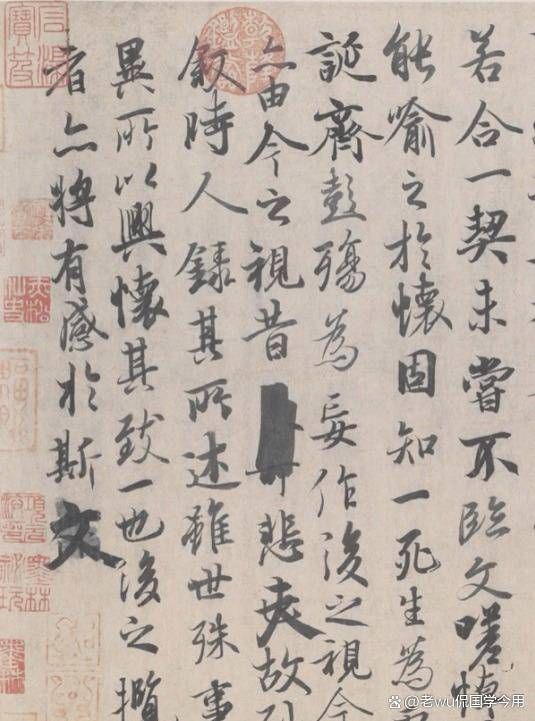 若合一契未嘗不臨文嗟悼
能喻之於懷固知一死生為
誕齊彭殤為妄作後之視今
亦由今之視昔悲夫故列
敘時人錄其所述雖世殊事
異所以興懷其致一也後之攬
者亦將有感於斯文
@老wu侃国学今用